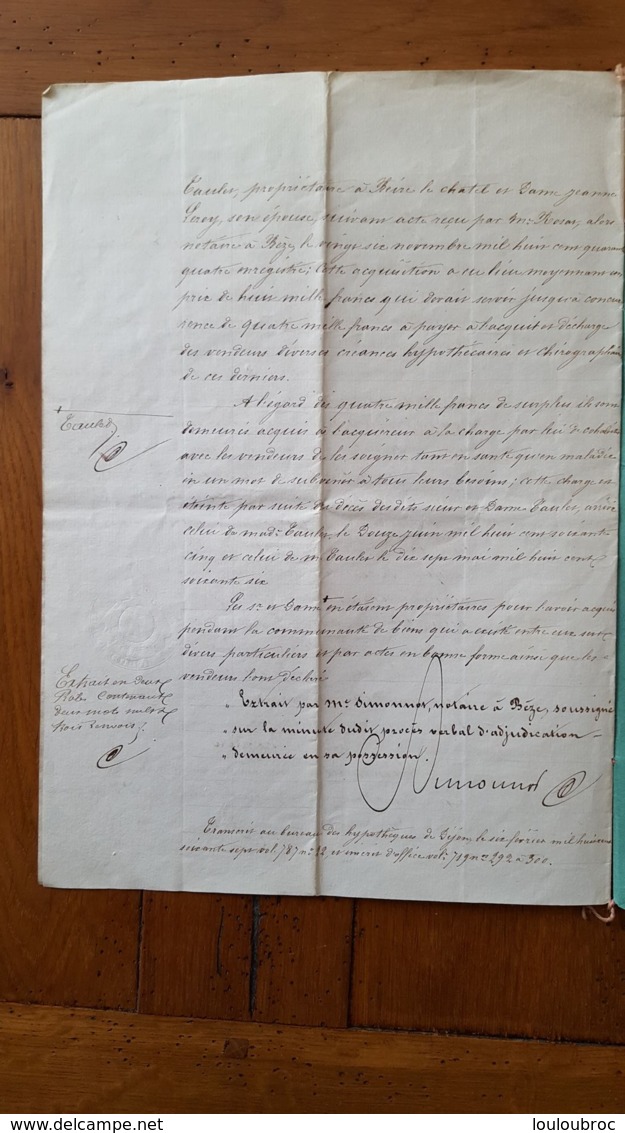 Tauler, propriétaire à Beire le chatel et Dame Jeanne
Leroy, son épouse, suivant acte reçu par Me Rosar, alors
notaire à Bèze, le vingt six novembre mil huit cent quarante
quatre enregistré; cette acquisition a eu lieu moyennant un
prix de huit mille francs qui devait servir jusqu'à concur
rence de quatre mille francs à payer à l'acquit et décharge
des vendeurs diverses créances hypothécaires et chirographaires
de ces derniers.
A l'égard des quatre mille francs de surplus ils sont
demeurés acquis à l'acquéreur à la charge par lui de
avec les vendeurs de les soigner tant en santé qu'en maladie
en un mot de subvenir à tous leurs besoins; cette charge est
éteinte par suite du décès des dits sieur et Dame Tauler, arrivé
celui de made Tauler le Douze juin mil huit cent soixante
cinq et celui de mr Tauler le dix sept mai mil huit cent
soixante six
Les sr et Dame en étaient propriétaires pour l'avoir acquis
pendant la communauté de biens qui a existé entre eux sur
divers particuliers et par actes en bonne forme ainsi que les
vendeurs l'ont déclaré
Tauler
Extrait en deux
Roles contenant
deux mots nuls &
trois renvois
" Extrait par Me Simonnot, notaire à Bèze, soussigné
" sur la minute dudit procès verbal d'adjudication
" demeurée en sa possession.
Simonnot
Transcrit au bureau des hypothèques de Dijon, le six février mil huit cent
soixante sept vol. 787 no 12 et inscrit d'office vol. 719 nos 292 a 300.
© louloubroc
Delcampe.net
louloubroc